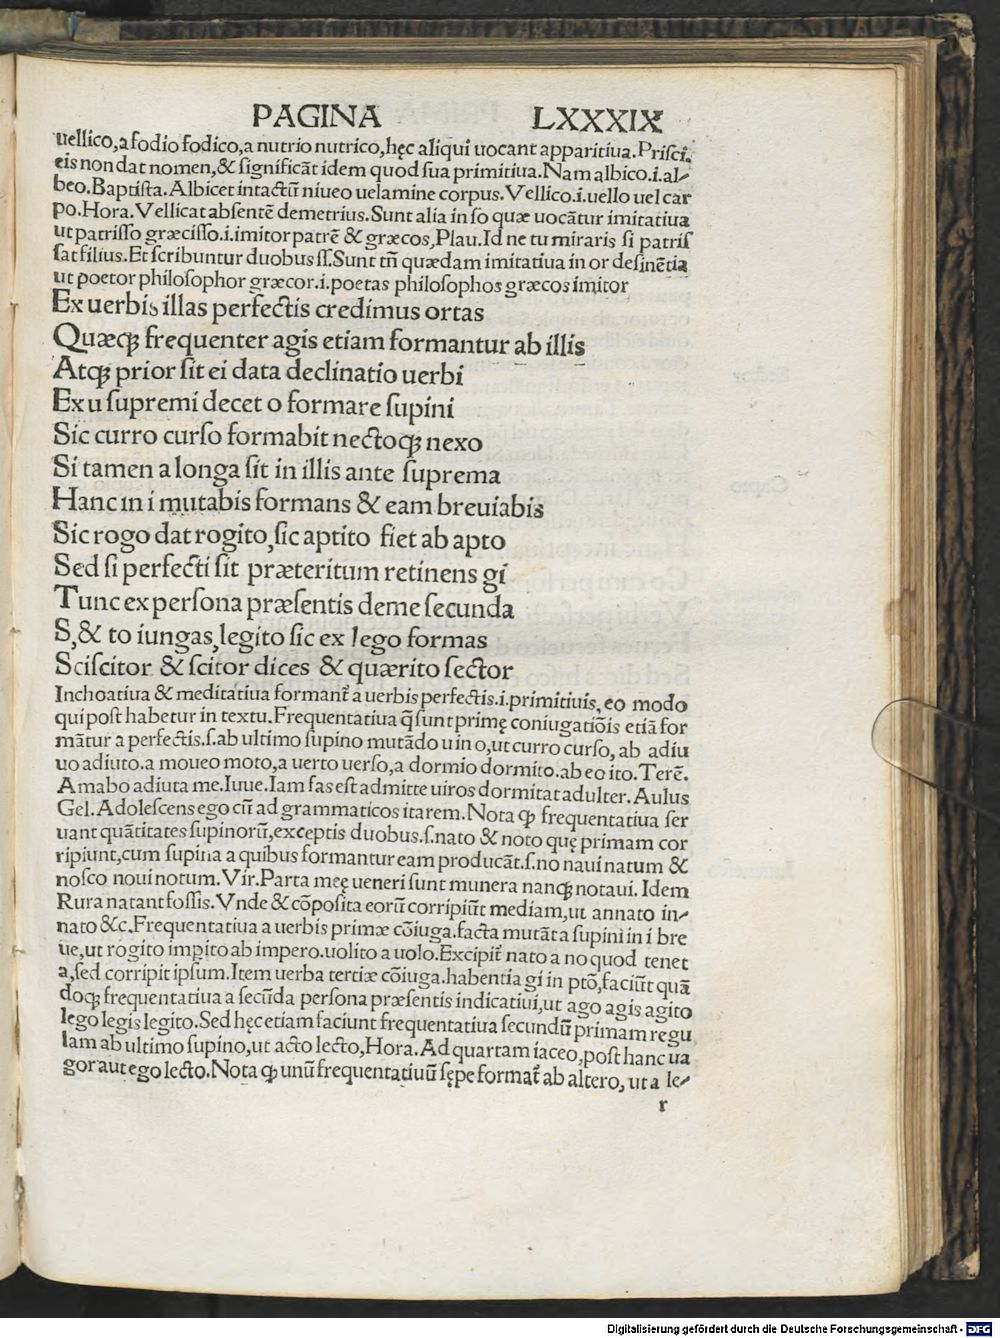 PAGINA LXXXIX
uellico,a fodio fodico,a nutrio nutrico,hęc aliqui uocant apparitiua.Prisci.
eis non dat nomen,& significāt idem quod sua primitiua.Nam albico.i.al-
beo.Baptista.Albicet intactū niueo uelamine corpus.Vellico.i.uello uel car
po.Hora.Vellicat absentē demetrius.Sunt alia in so quæ uocātur imitatiua
ut patrisso græcisso.i.imitor patrē & græcos,Plau.Id ne tu miraris si patris
sat filius.Et scribuntur duobus ss.Sunt tñ quædam imitatiua in or desinētia
ut poetor philosophor græcor.i.poetas philosophos græcos imitor
Ex uerbis illas perfectis credimus ortas
Quæcꝫ frequenter agis etiam formantur ab illis
Atqꝫ prior sit ei data declinatio uerbi
Ex u supremi decet o formare supini
Sic curro curso formabit nectoqꝫ nexo
Si tamen a longa sit in illis ante suprema
Hanc in i mutabis formans & eam breuiabis
Sic rogo dat rogito,sic aptito fiet ab apto
Sed si perfecti sit præteritum retinens gi
Tunc ex persona præsentis deme secunda
S,& to iungas,legito sic ex lego formas
Sciscitor & scitor dices & quærito sector
Inchoatiua & meditatiua formant᷑ a uerbis perfectis.i.primitiuis,eo modo
qui post habetur in textu.Frequentatiua q̄ sunt primę coniugatiōis etiā for
mātur a perfectis.s.ab ultimo supino mutādo u in o,ut curro curso, ab adiu
uo adiuto.a moueo moto,a uerto uerso,a dormio dormito.ab eo ito.Terē.
Amabo adiuta me.Iuue.Iam fas est admitte uiros dormitat adulter. Aulus
Gel.Adolescens ego cū ad grammaticos itarem.Nota ꝙ frequentatiua ser
uant quātitates supinorū,exceptis duobus.s.nato & noto quę primam cor
ripiunt,cum supina a quibus formantur eam producāt.s.no naui natum &
nosco noui notum.Vir.Parta meę ueneri sunt munera nanqꝫ notaui. Idem
Rura natant fossis.Vnde & cōposita eorū corripiūt mediam,ut annato in-
nato &c.Frequentatiua a uerbis primæ cōiuga.facta mutāt a supini in i bre
ue,ut rogito impito ab impero.uolito a uolo.Excipit᷑ nato a no quod tenet
a,sed corripit ipsum.Item uerba tertiæ cōiuga.habentia gi in ptō,faciūt quā
doqꝫ frequentatiua a secūda persona præsentis indicatiui,ut ago agis agito
lego legis legito.Sed hęc etiam faciunt frequentatiua secundū primam regu
lam ab ultimo supino,ut acto lecto,Hora.Ad quartam iaceo,post hanc ua
gor aut ego lecto.Nota ꝙ unū frequentatiuū sępe format᷑ ab altero, ut a le-
r
Digitalisierung gefördert durch die Deutsche Forschungsgemeinschaft - DFG